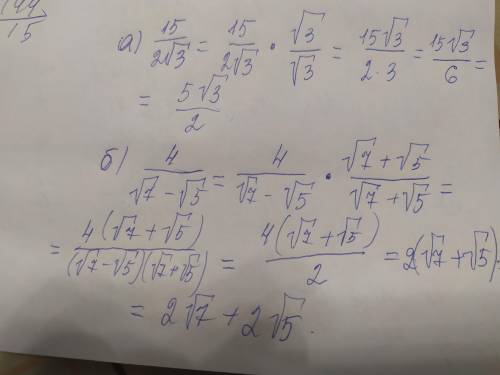 144/15
а) 15/(2√3) = 15/(2√3) · √3/√3 = 15√3/(2·3) = 15√3/6 =
= 5√3/2
б) 4/(√7 − √5) = 4/(√7 − √5) · (√7 + √5)/(√7 + √5) =
= 4(√7 + √5)/((√7 − √5)(√7 + √5)) = 4(√7 + √5)/2 = 2(√7 + √5) =
= 2√7 + 2√5.